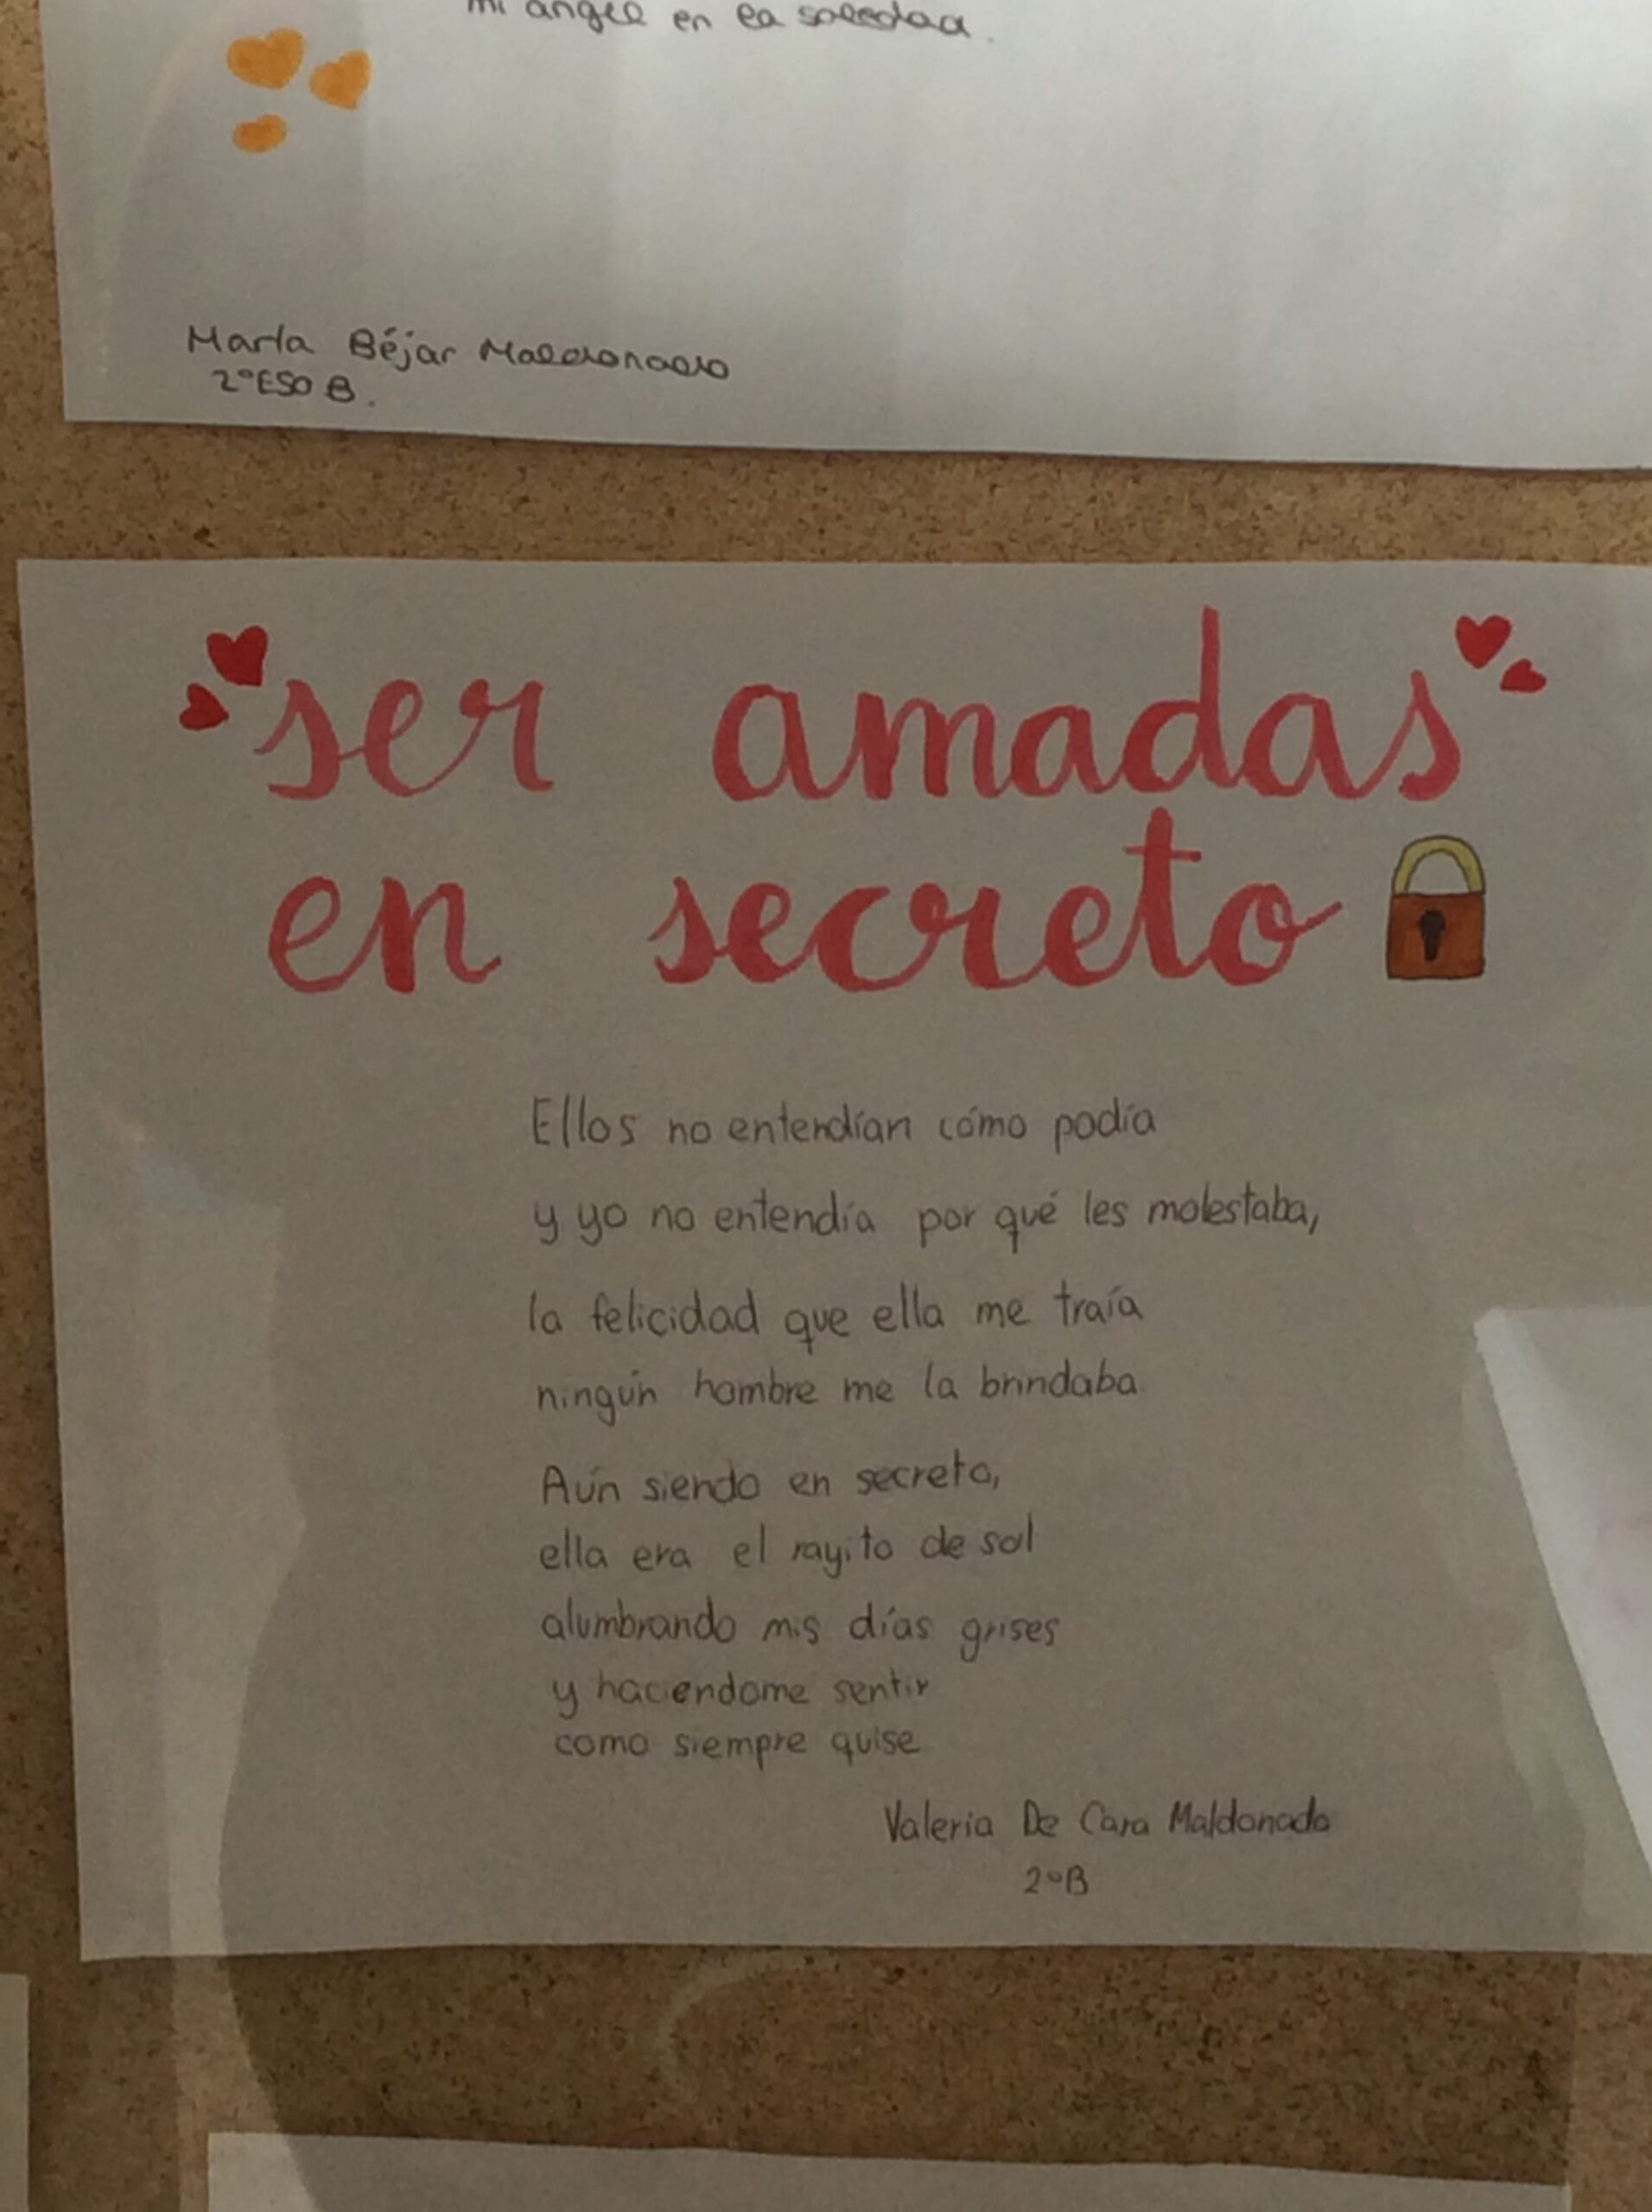 mi angel en la soledad.
María Béjar Maldonado
2ºESO B.
ser amadas
en secreto
Ellos no entendían cómo podía
y yo no entendía por qué les molestaba,
la felicidad que ella me traía
ningún hombre me la brindaba.
Aún siendo en secreto,
ella era el rayito de sol
alumbrando mis días grises
y haciendome sentir
como siempre quise
Valeria De Cara Maldonado
2ºB